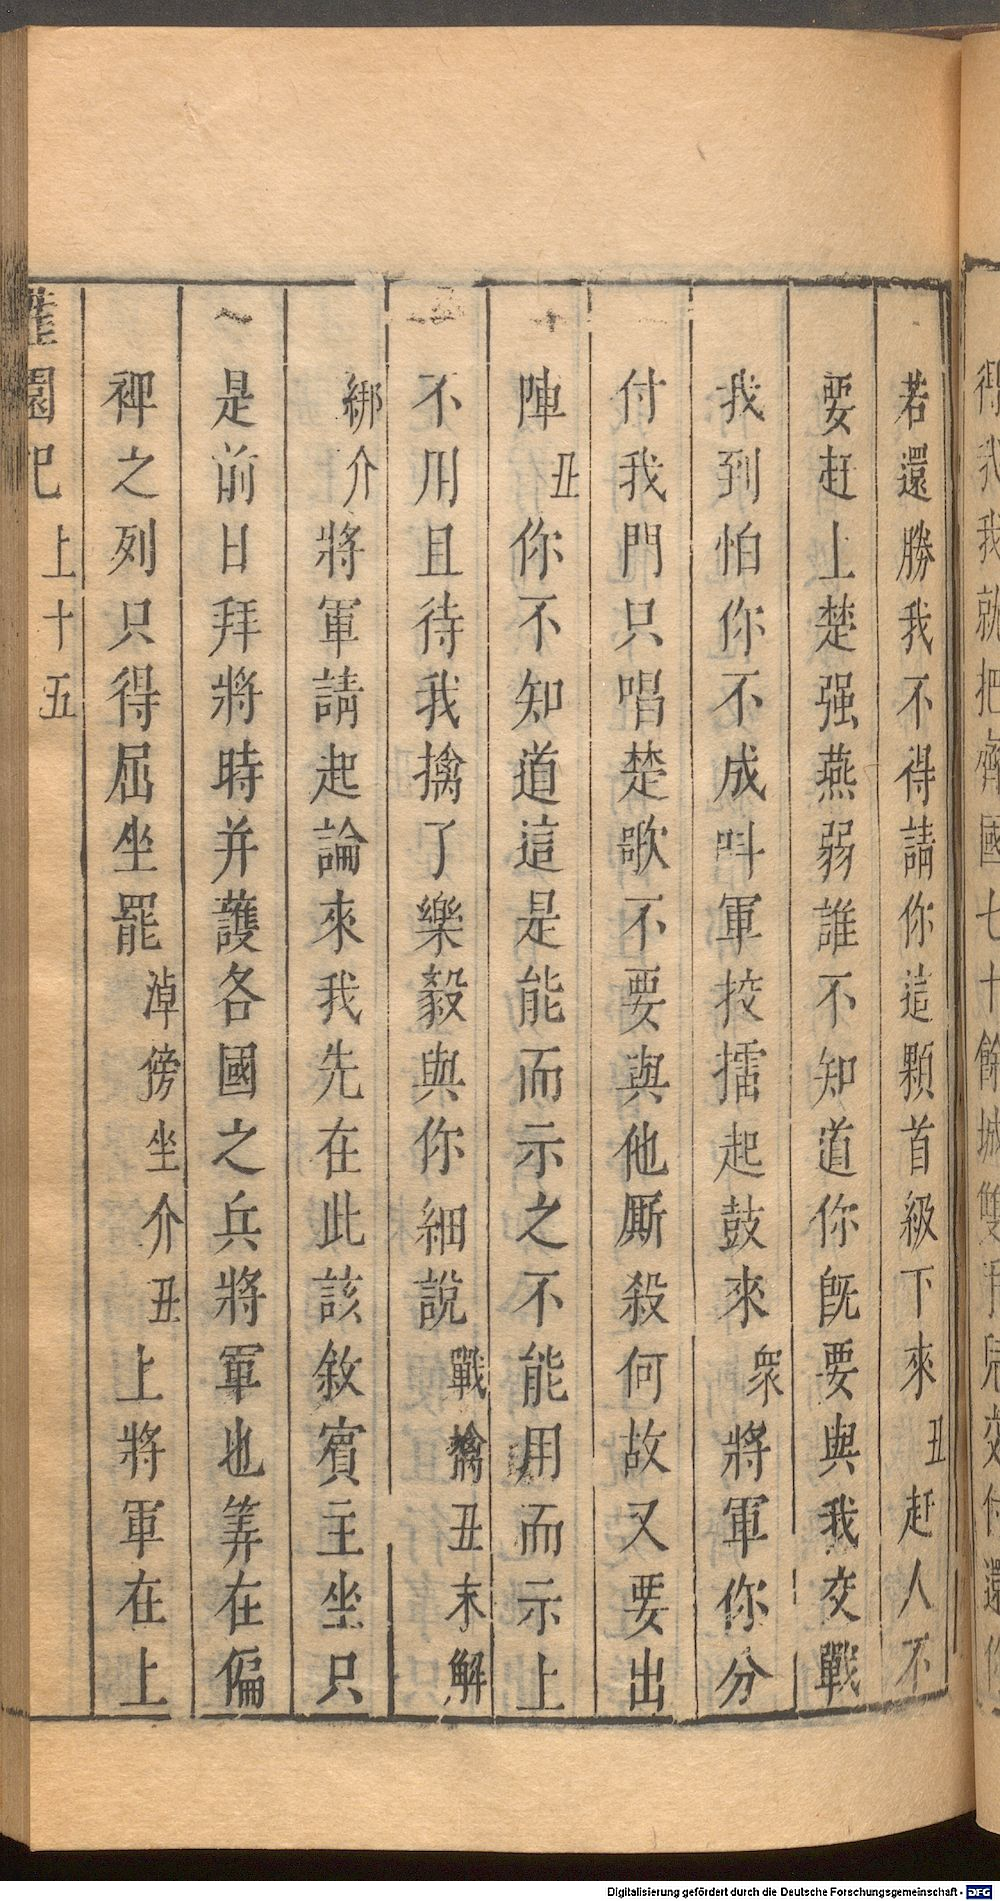 若還勝我不得請你這顆首級下來丑赶人不
要赶上楚强燕弱誰不知道你旣要與我交戰
我到怕你不成呌軍挍擂起鼓來衆將軍你分
付我門只唱楚歌不要與他厮殺何故又要出
陣丑你不知道這是能而示之不能用而示上
不用且待我擒了樂毅與你細說戰擒丑末解
綁介將軍請起論來我先在此該敘賓主坐只
是前日拜將時并護各國之兵將軍也筭在偏
裨之列只得屈坐罷淖傍坐介丑上將軍在上
灌園記 上十五
Digitalisierung gefördert durch die Deutsche Forschungsgemeinschaft - DFG